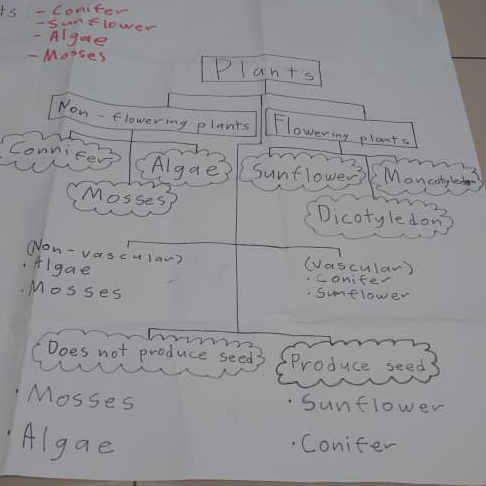 ts - Conifer
- Sunflower
- Algae
- Mosses
Plants
Non-flowering plants
Flowering plants
Connifer
Algae
Mosses
Sunflower
Moncotyledon
Dicotyledon
(Non-vascular)
· Algae
· Mosses
(vascular)
· Conifer
· Sunflower
Does not produce seed
· Mosses
· Algae
Produce seed
· Sunflower
· Conifer